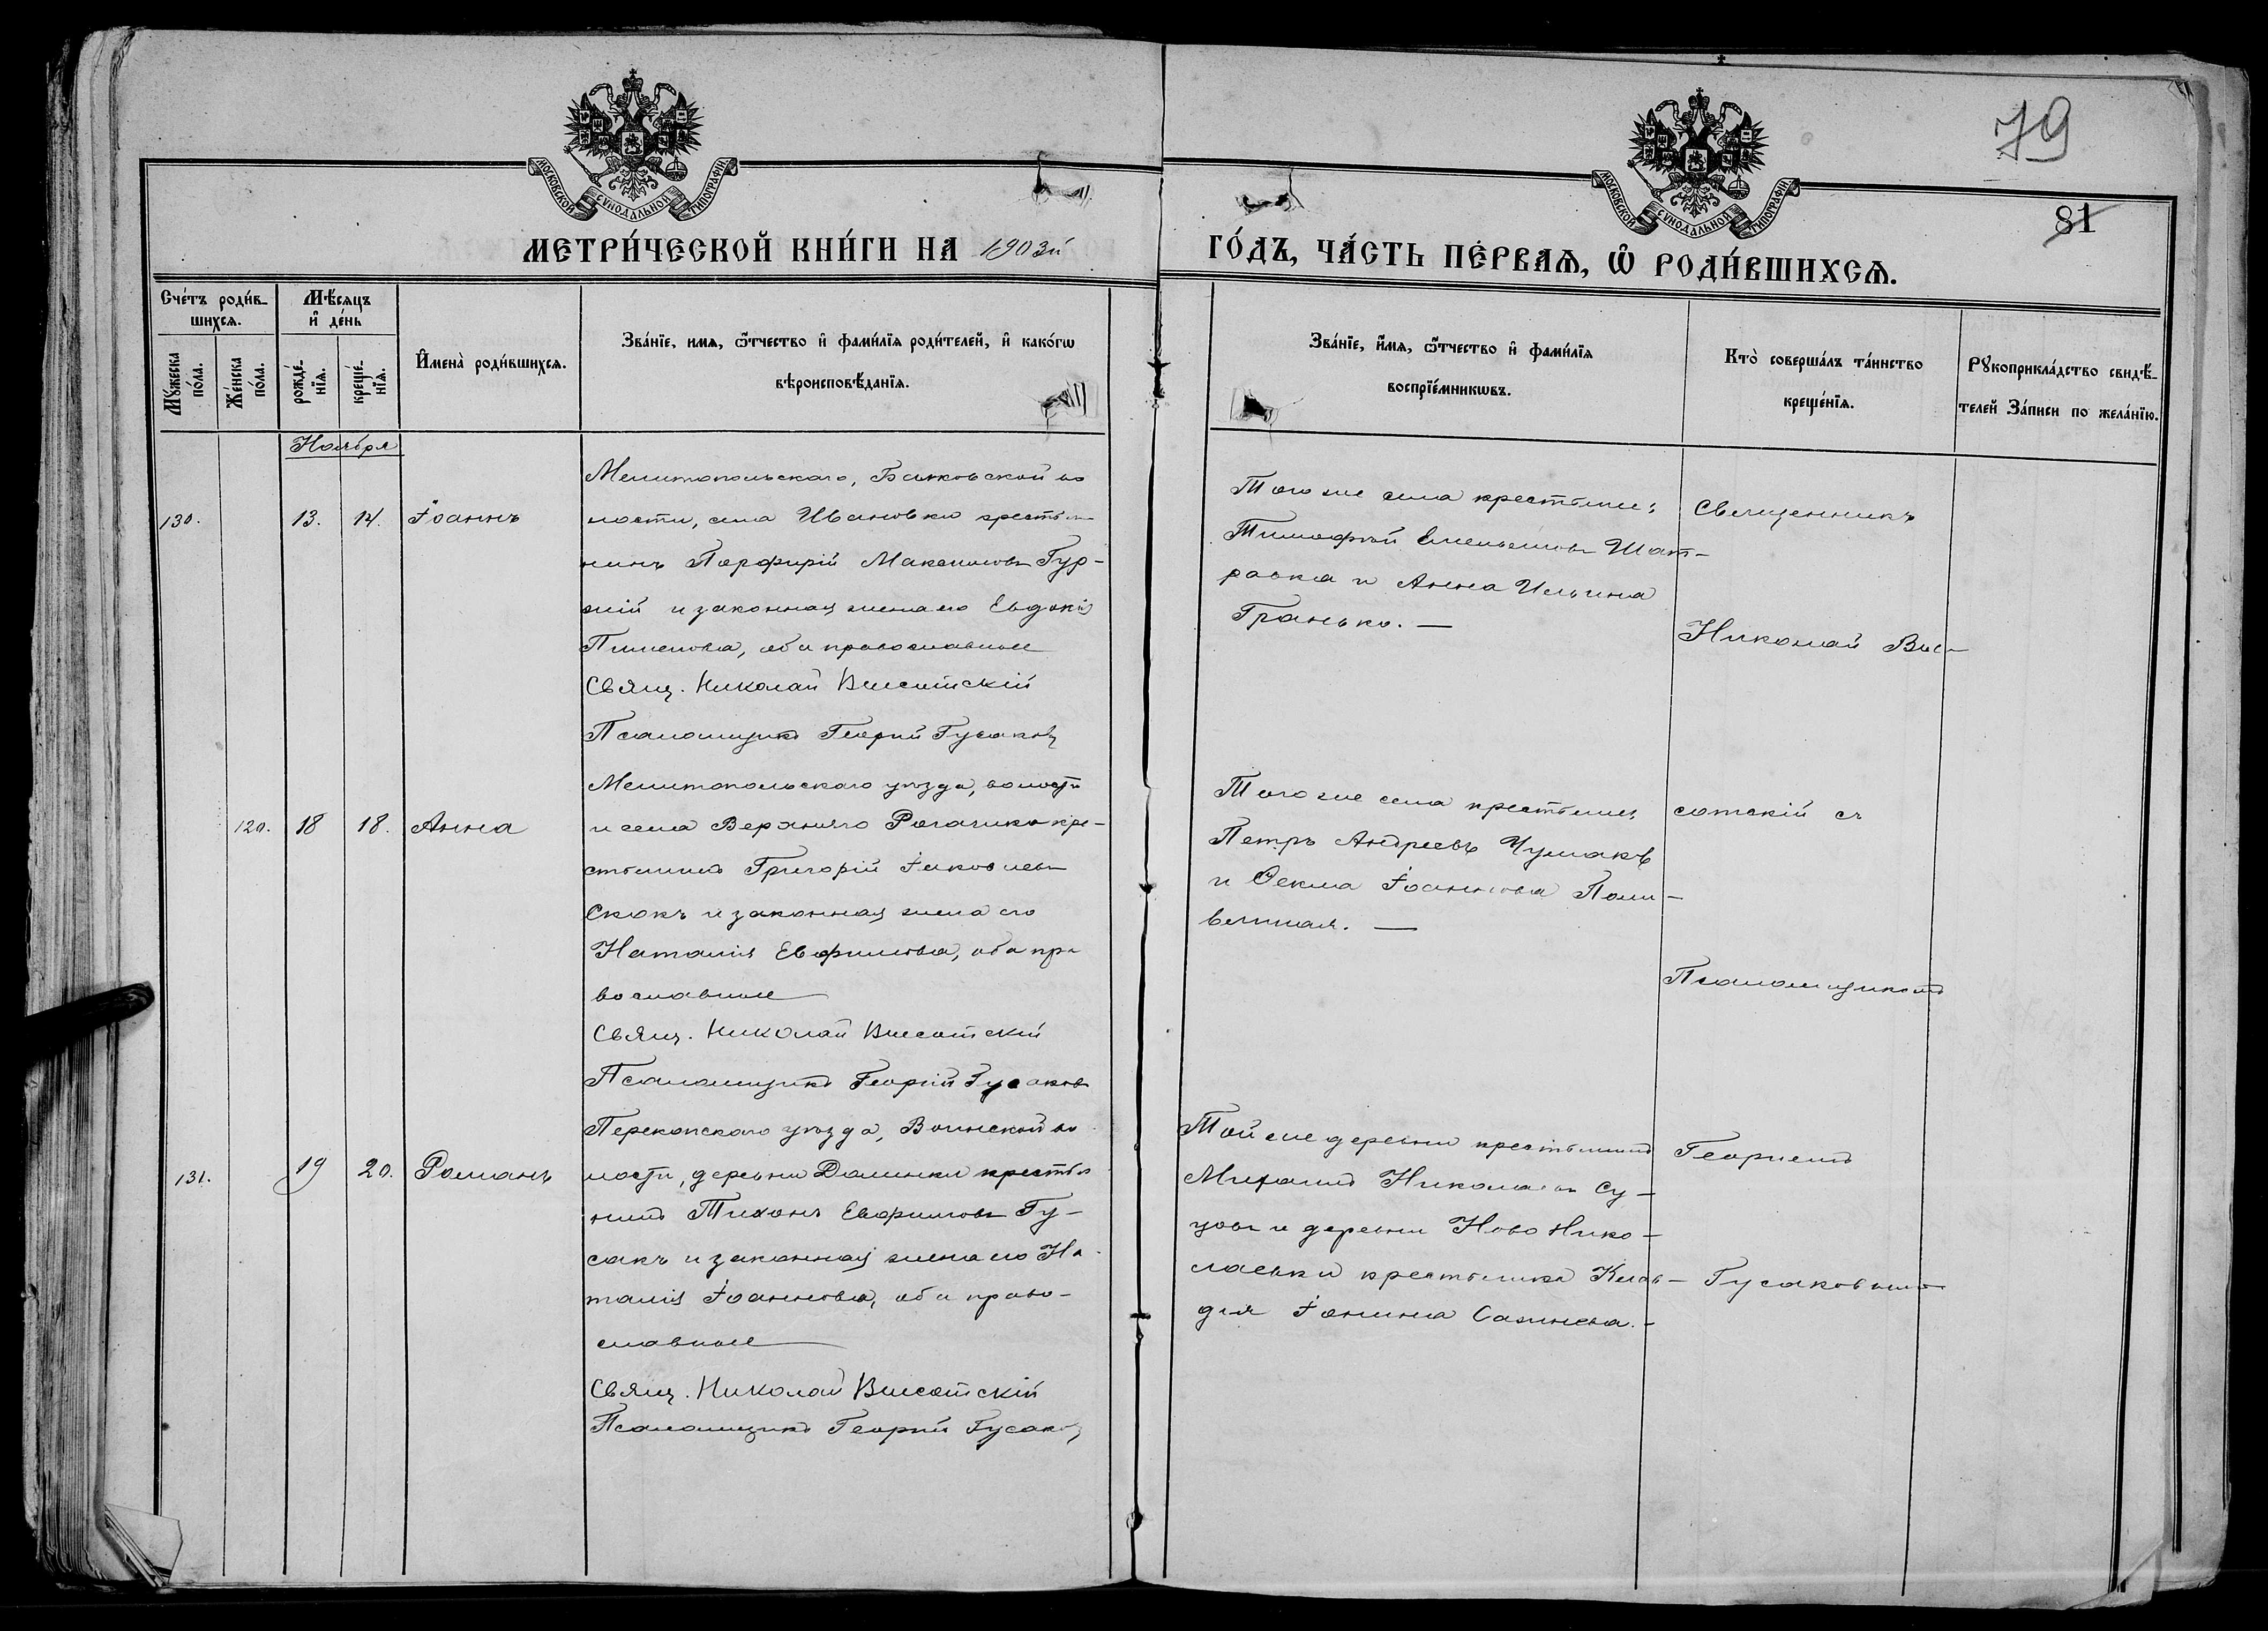 79
81
МОСКОВСКОЙ СУНОДАЛЬНОЙ ТИПОГРАФІИ
МОСКОВСКОЙ СУНОДАЛЬНОЙ ТИПОГРАФІИ
МЕТРИ́ЧЕСКОЙ КНИ́ГИ НА 1903й
ГО́ДЪ, ЧА́СТЬ ПЕ́РВАѦ, Ѽ РОДИ́ВШИХСѦ.
Сче́тъ роди́в-
шихсѧ.
Мꙋ́жеска по́ла.
Же́нска по́ла.
Мѣ́сѧцъ
и҆ де́нь
рожде́-
нїѧ.
креще́-
нїѧ.
И҆мена̀ роди́вшихсѧ.
Зва́нїе, имѧ, ѻ҆́тчество и҆ фами́лїѧ роди́телей, и҆ како́гѡ
вѣроисповѣ́данїѧ.
Зва́нїе, и҆́мѧ, ѻ҆́тчество и҆ фами́лїѧ
воспрїе́мникѡвъ.
Кто̀ соверша́лъ та́инство
креще́нїѧ.
Рꙋкоприкла́дство свидѣ́-
телей За́писи по жела́нїю.
Ноября
130.
13.
14.
Іоаннъ
Мелитопольскаго, Балковской во
лости, села Ивановки крестья
нинъ Порфирій Максимовъ Гур-
жій и законная жена его Евдокія
Пименова, оба православные
Свящ. Николай Высотскій
Псаломщикъ Георгій Гусаковъ
Того же села крестьяне:
Тимофей Емельяновъ Шат-
равка и Анна Ильина
Гранько. —
Священникъ
Николай Вы-
120.
18
18.
Анна
Мелитопольскаго уѣзда, волости
и села Верхняго Рогачика кре-
стьянинъ Григорій Іаковлевъ
Скокъ и законная жена его
Наталія Евфимова, оба пра
вославные
Свящ. Николай Высотскій
Псаломщикъ Георгій Гусаковъ
Того же села крестьяне:
Петръ Андреевъ Чумакъ
и Ѳекла Іоаннова Поли-
вянная. —
сотскій съ
Псаломщикомъ
131.
19
20.
Романъ
Перекопскаго уѣзда, Воинской во
лости, деревни Долинки крестья
нинъ Тихонъ Евфимовъ Гу-
сакъ и законная жена его На
талія Іоаннова, оба право-
славные
Свящ. Николай Высотскій
Псаломщикъ Георгій Гусаковъ
Той же деревни крестьянинъ
Михаилъ Николаевъ Су-
цовъ и деревни Ново Нико-
лаевки крестьянка Клав-
дія Іонина
Георгіемъ
Гусаковымъ